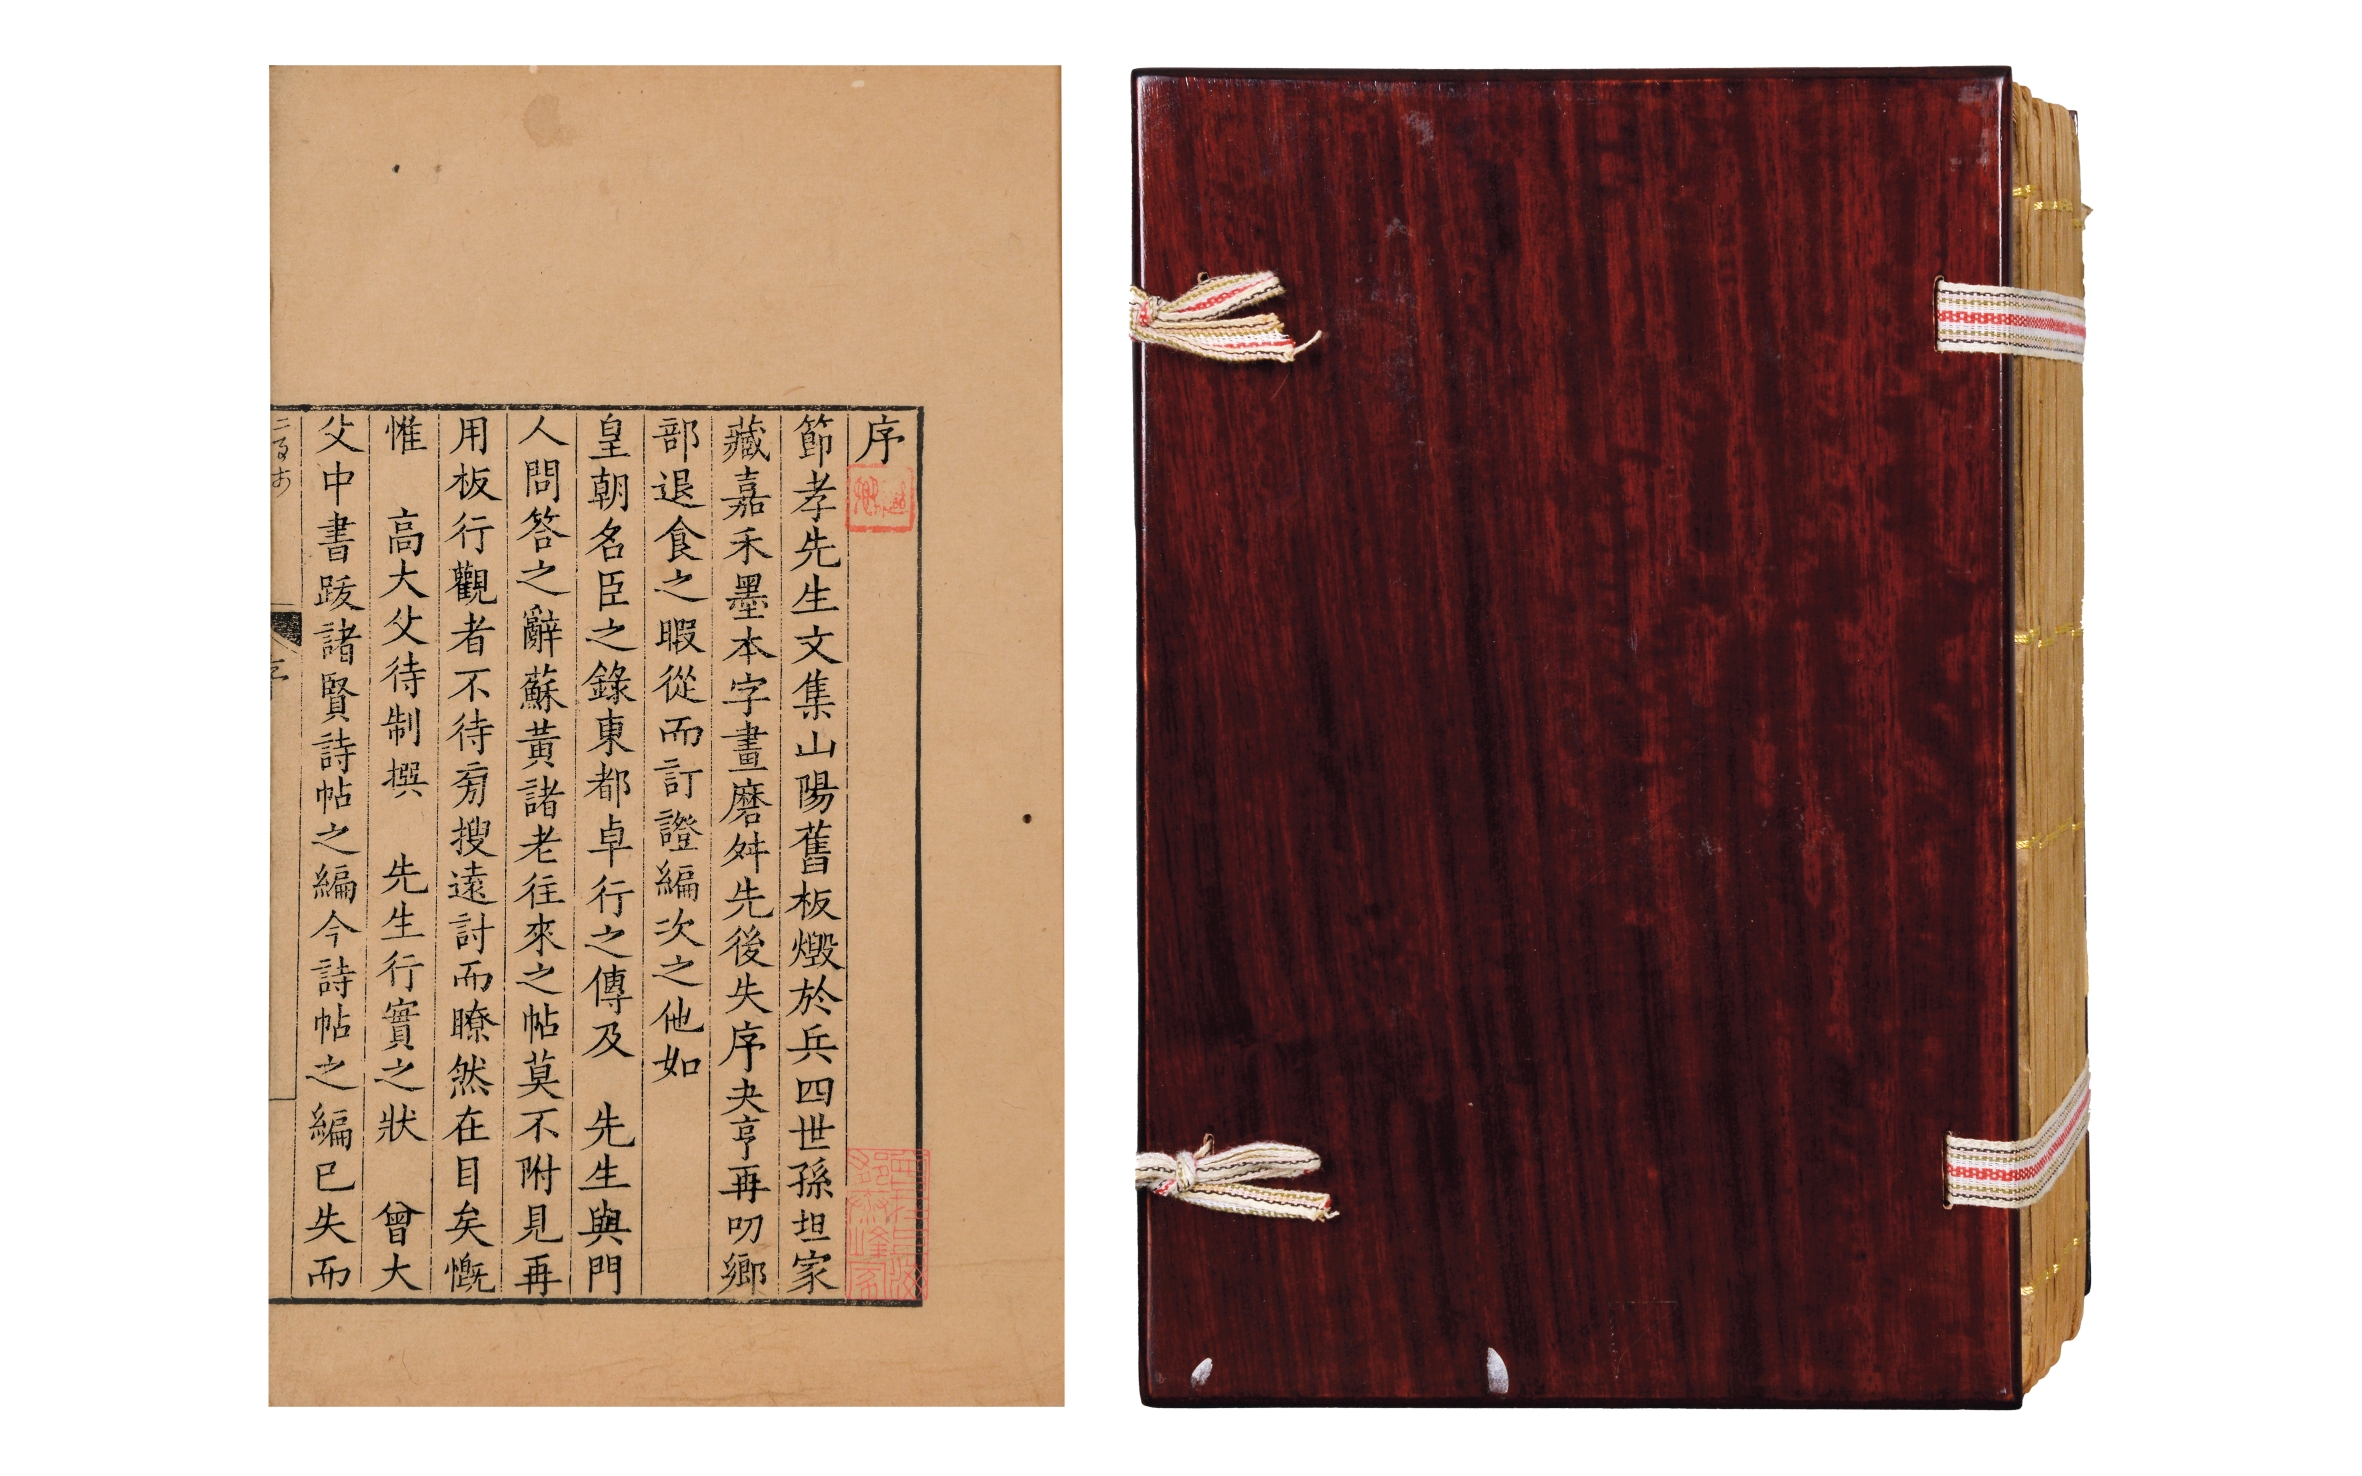 序
節孝先生文集山陽舊板燬於兵四世孫坦家
藏嘉禾墨本字畫磨舛先後失序夬亨再叨鄉
部退食之暇從而訂證編次之他如
皇朝名臣之錄東都卓行之傳及　先生與門
人問答之辭蘇黃諸老往來之帖莫不附見再
用板行觀者不待旁搜遠討而瞭然在目矣慨
惟　高大父待制撰　先生行實之狀　曾大
父中書跋諸賢詩帖之編今詩帖之編已失而